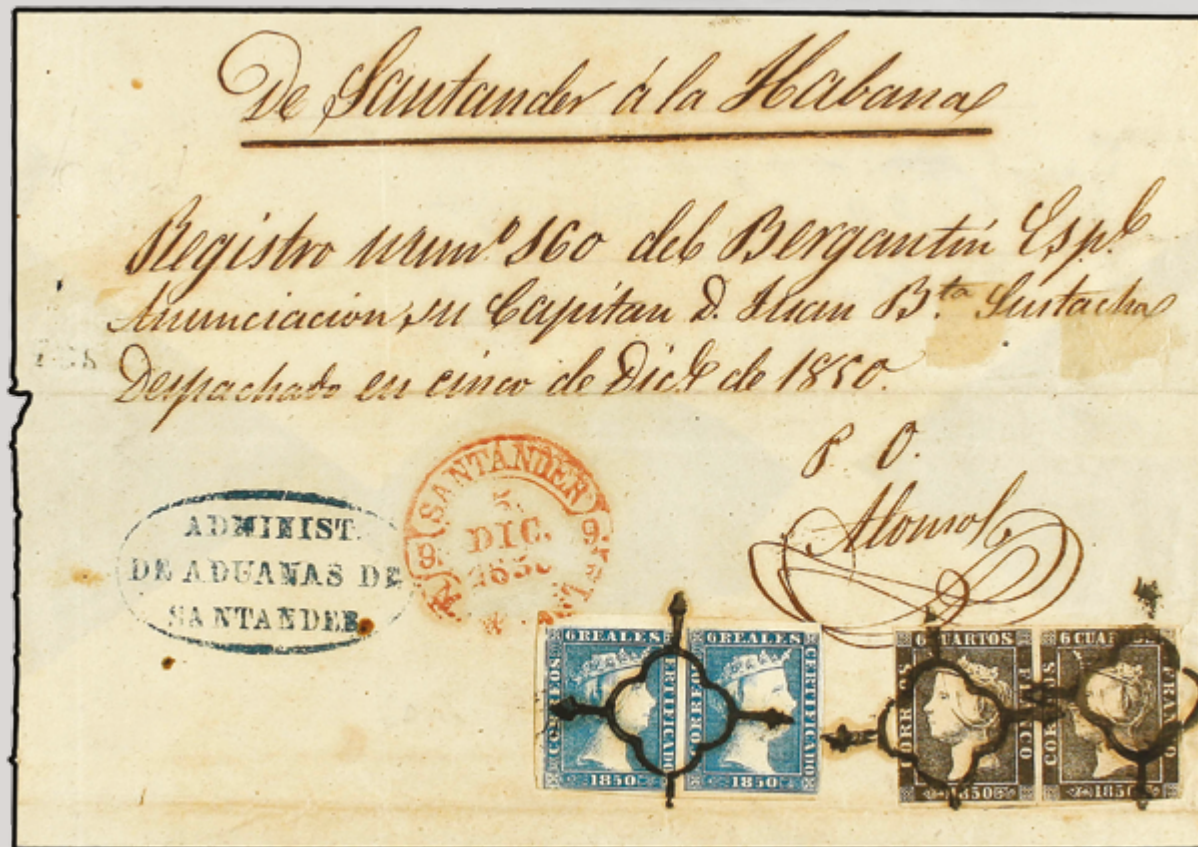 De Santander á la Habana
Registro num.º 160 del Bergantin Esp.l
Anunciacion, su Capitan D. Juan B.ta
Despachado en cinco de Dicb.e de 1850.
P. O.
Alonso
ADMINIST.
DE ADUANAS DE
SANTANDER
SANTANDER
5.
DIC.
1850
6 REALES
CORREOS
CERTIFICADO
1850
6 REALES
CORREOS
CERTIFICADO
1850
6 CUARTOS
CORREOS
FRANCO
1850
6 CUARTOS
CORREOS
FRANCO
1850